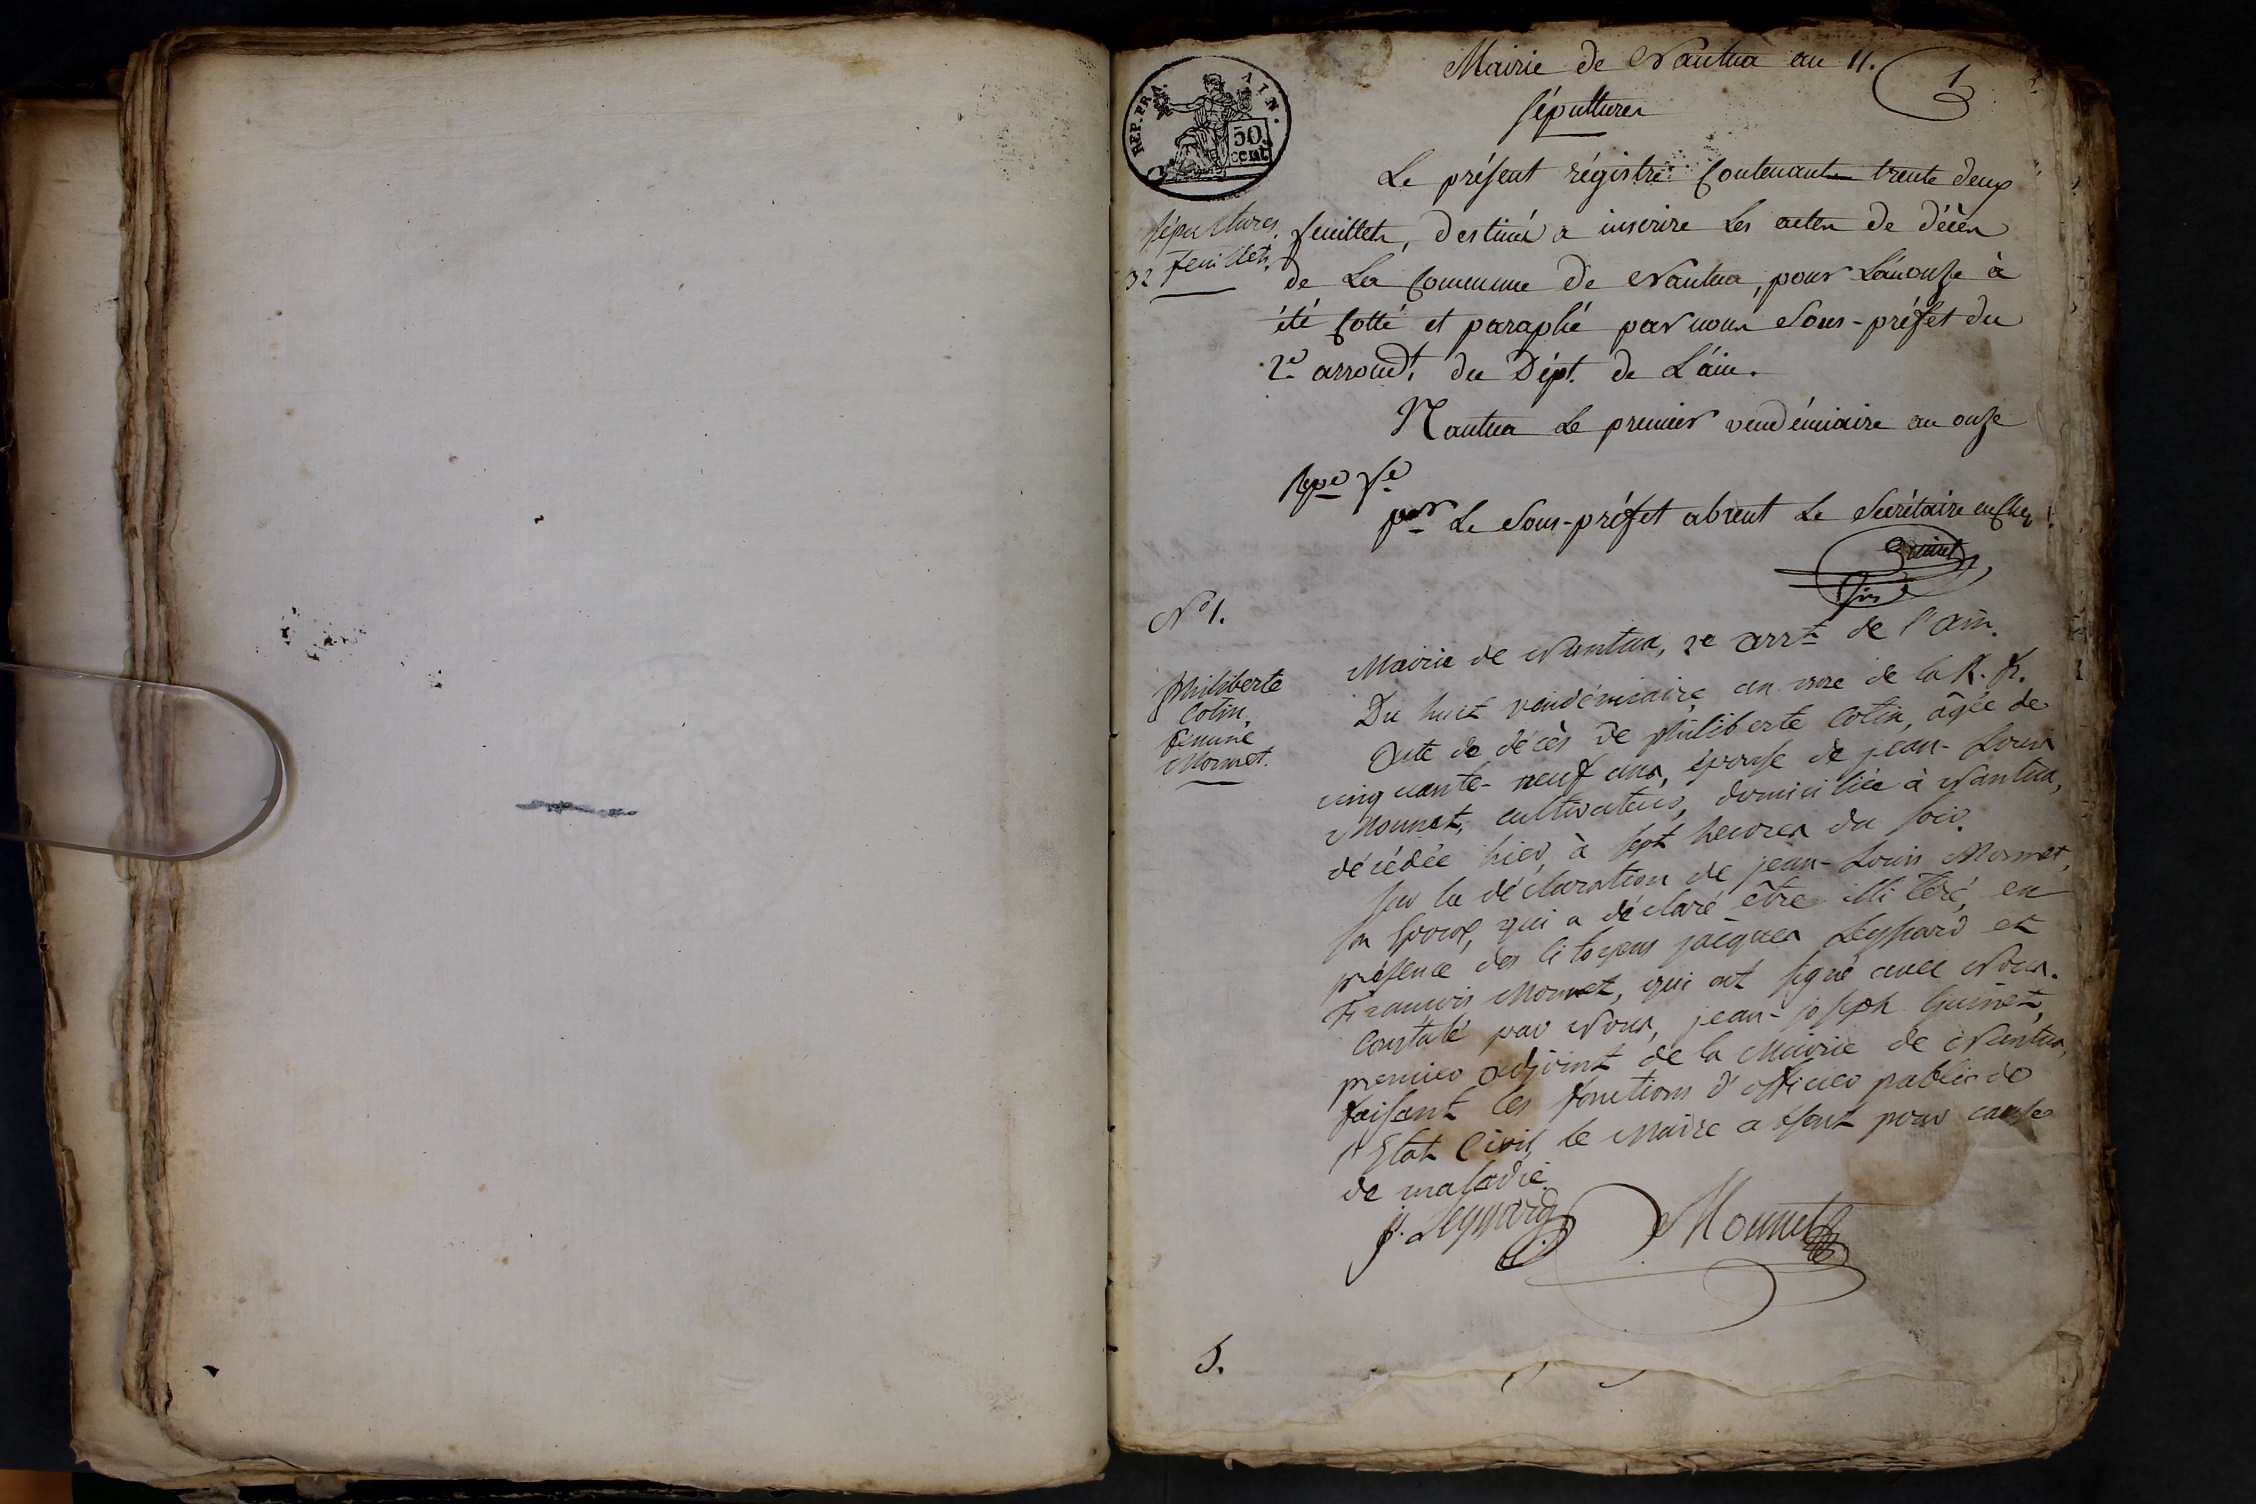 REP. FRA. AIN.
50 cent.
Mairie de Nantua an 11.
1
sépultures
Le présent régistre contenant trente deux
sépultures.
32 feuillets.
feuillets, destiné a inscrire Les actes de décès
de La Commune de Nantua, pour L'an onze à
été Cotté et paraphé par nous Sous-préfet du
2e arrondt. du Dépt. de L'ain.
Nantua Le premier vendémiaire an onze
pr Le Sous-préfet absent Le Secrétaire en chef
Guinet
N° 1.
Mairie de Nantua, 2e arrt de l'ain.
philiberte
Cotin,
femme
Monnet.
Du huit vendémiaire an onze de la R. f.
Acte de décès de philiberte Cotin, âgée de
cinquante-neuf ans, épouse de jean-Louis
Monnet, cultivateur, domiciliée à Nantua,
décédée hier, à sept heures du soir.
sur la déclaration de jean-Louis Monnet,
son époux, qui a déclaré être illitéré, en
présence des Citoyens jacques Leyssard et
François Monnet, qui ont signé avec Nous.
Constaté par Nous, jean-joseph Guinet,
premier adjoint de la Mairie de Nantua,
faisant les fonctions d'officier public de
l'Etat Civil, le Maire absent pour cause
de maladie.
j. Leyssard Monnet
5.